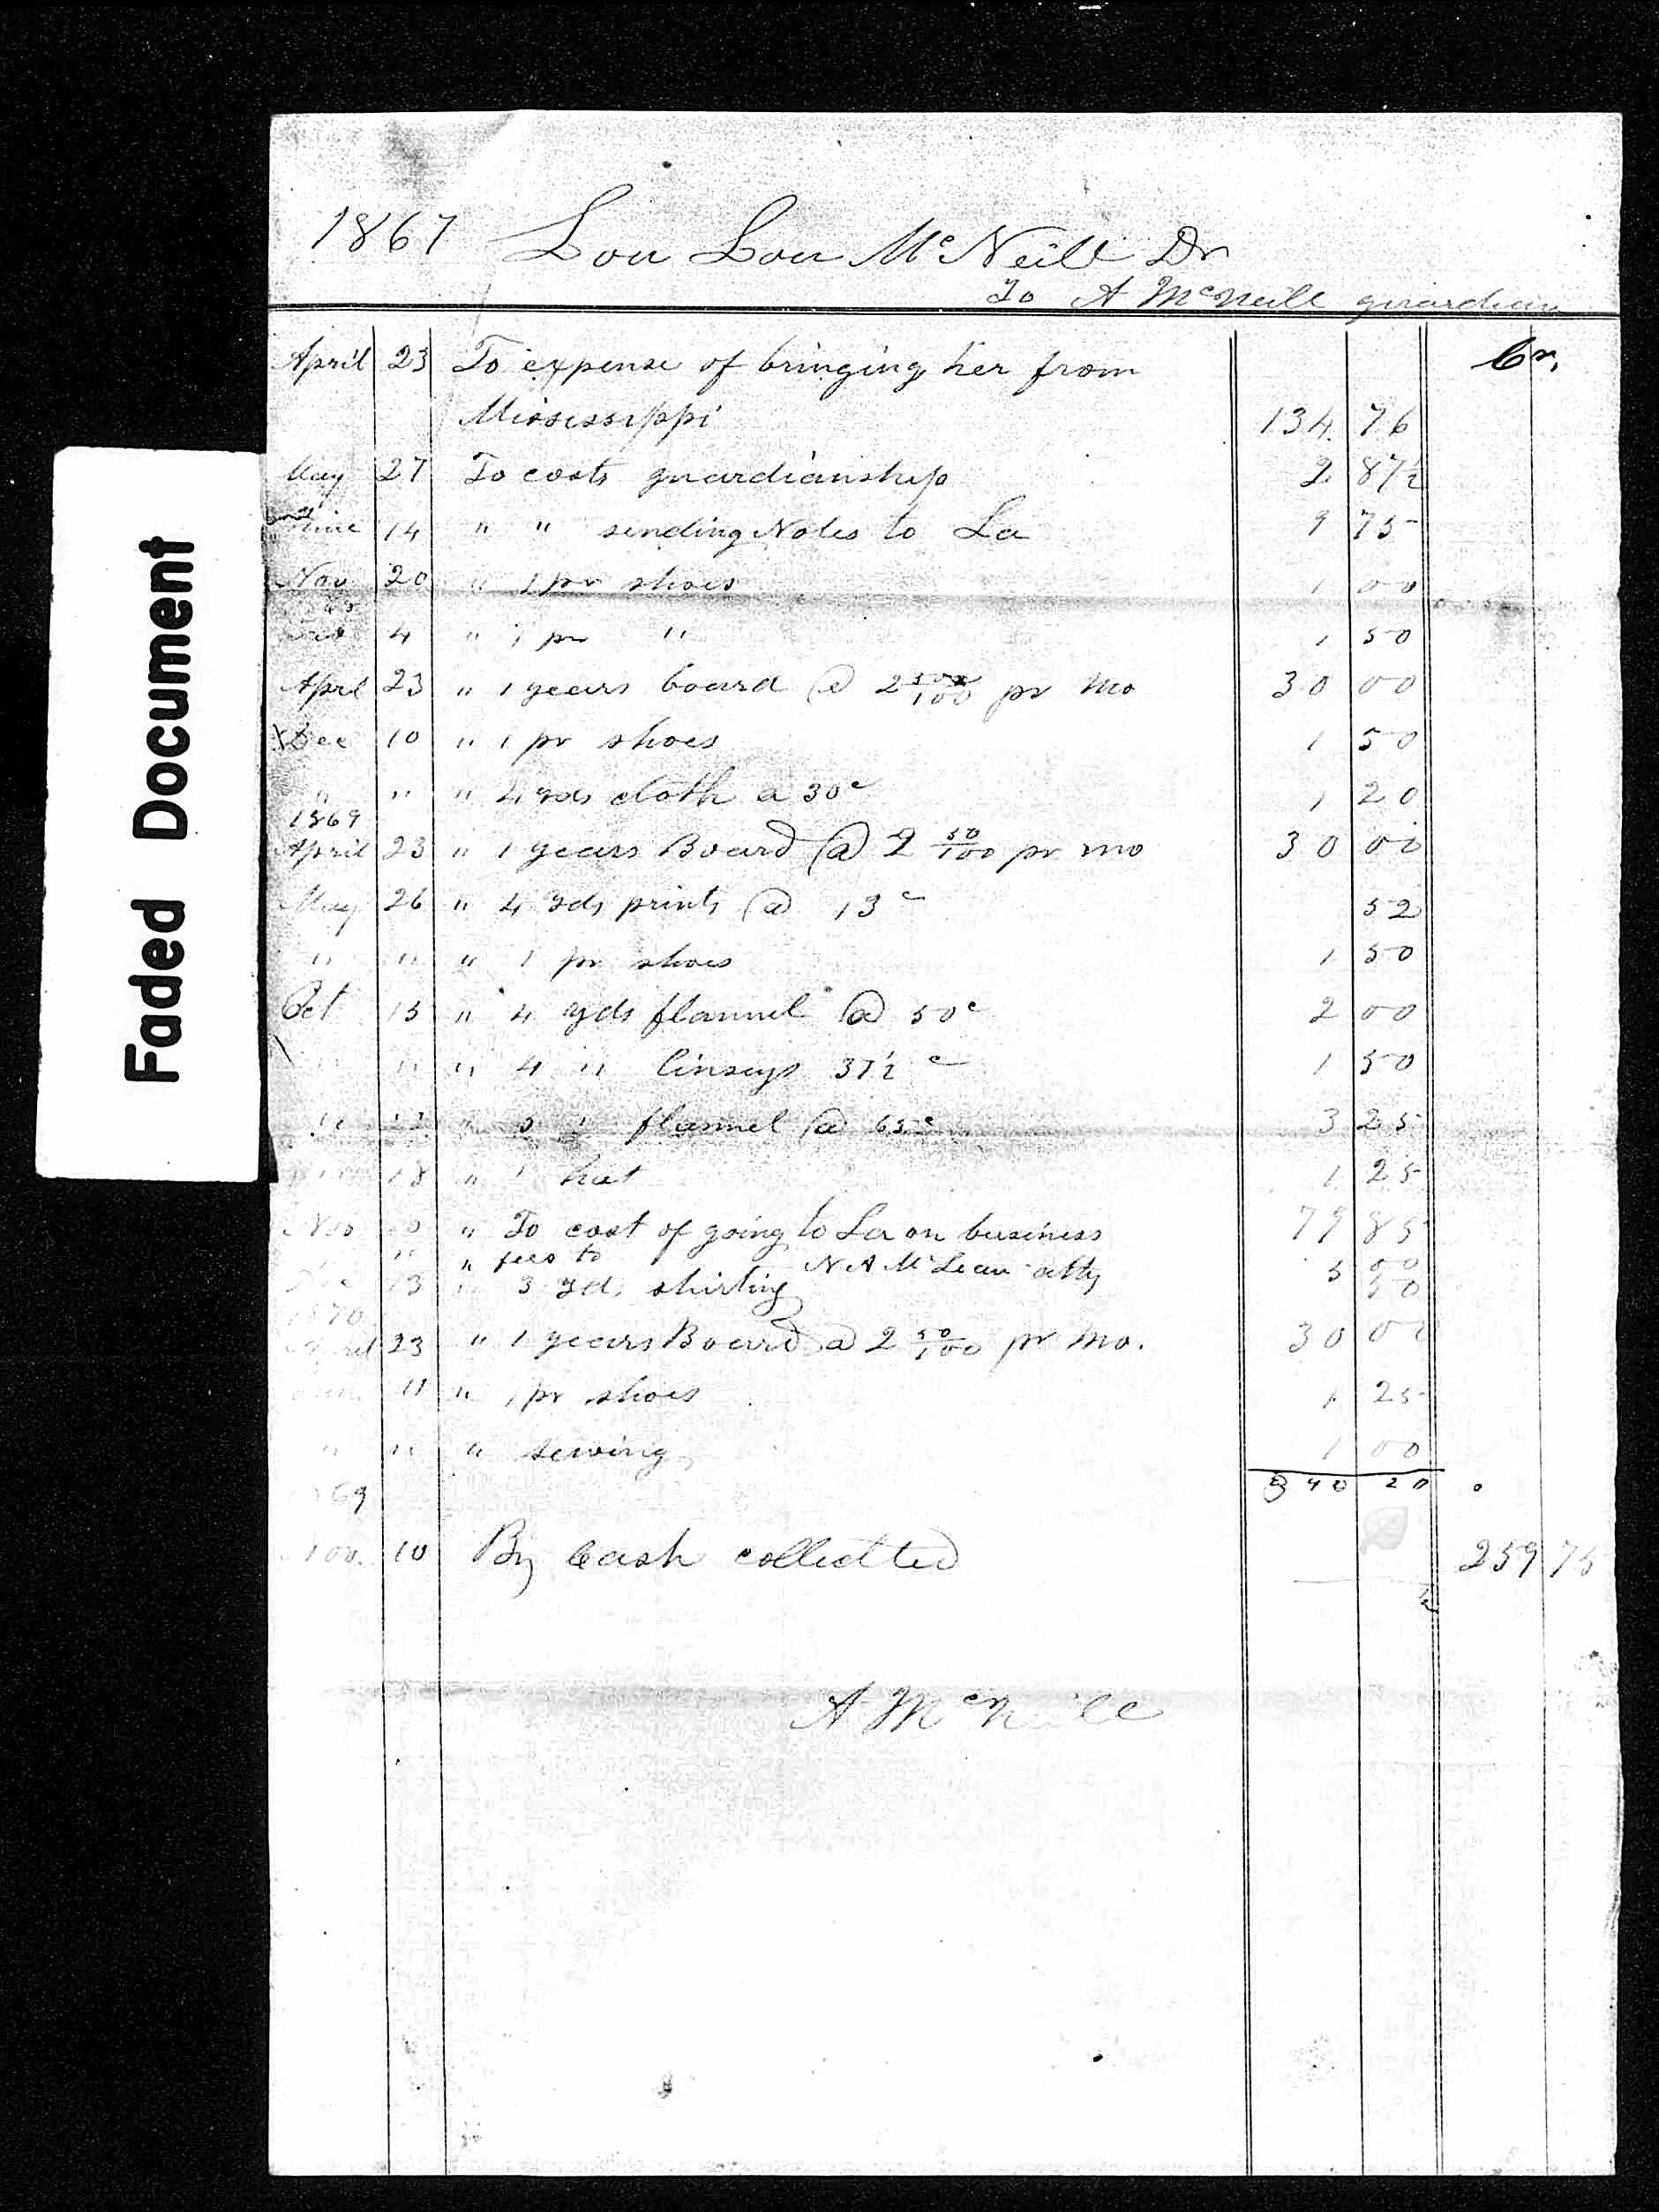 Faded Document
1867 Lou Lou McNeill Dr
To A McNeill guardian
Cr.
April 23 To expense of bringing her from
Mississippi 134. 76
May 27 To costs guardianship 2 87½
June 14 " " sending Notes to La 9 75
Nov 20 " 1 pr shoes 1 00
4 " 1 pr " 1 50
April 23 " 1 years board @ 2 50/100 pr mo 30 00
Dec 10 " 1 pr shoes 1 50
" " " 4 yds cloth a 30c 1 20
1869
April 23 " 1 years Board @ 2 50/100 pr mo 30 00
May 26 " 4 yds prints @ 13c 52
" " " 1 pr shoes 1 50
Oct 15 " 4 yds flannel @ 50c 2 00
" " " 4 " linseys 37½ c 1 50
" " " 5 " flannel @ 65c 3 25
18 " 1 hat 1 25
Nov " To cost of going to La on business 79 85
" " fees to N A McLean atty 5 00
13 " 3 yds shirting 50
1870
April 23 " 1 years Board a 2 50/100 pr mo. 30 00
11 " 1 pr shoes 1 25
" " " sewing 1 00
340 20
69
Nov. 10 By Cash collected 259 75
A McNeill